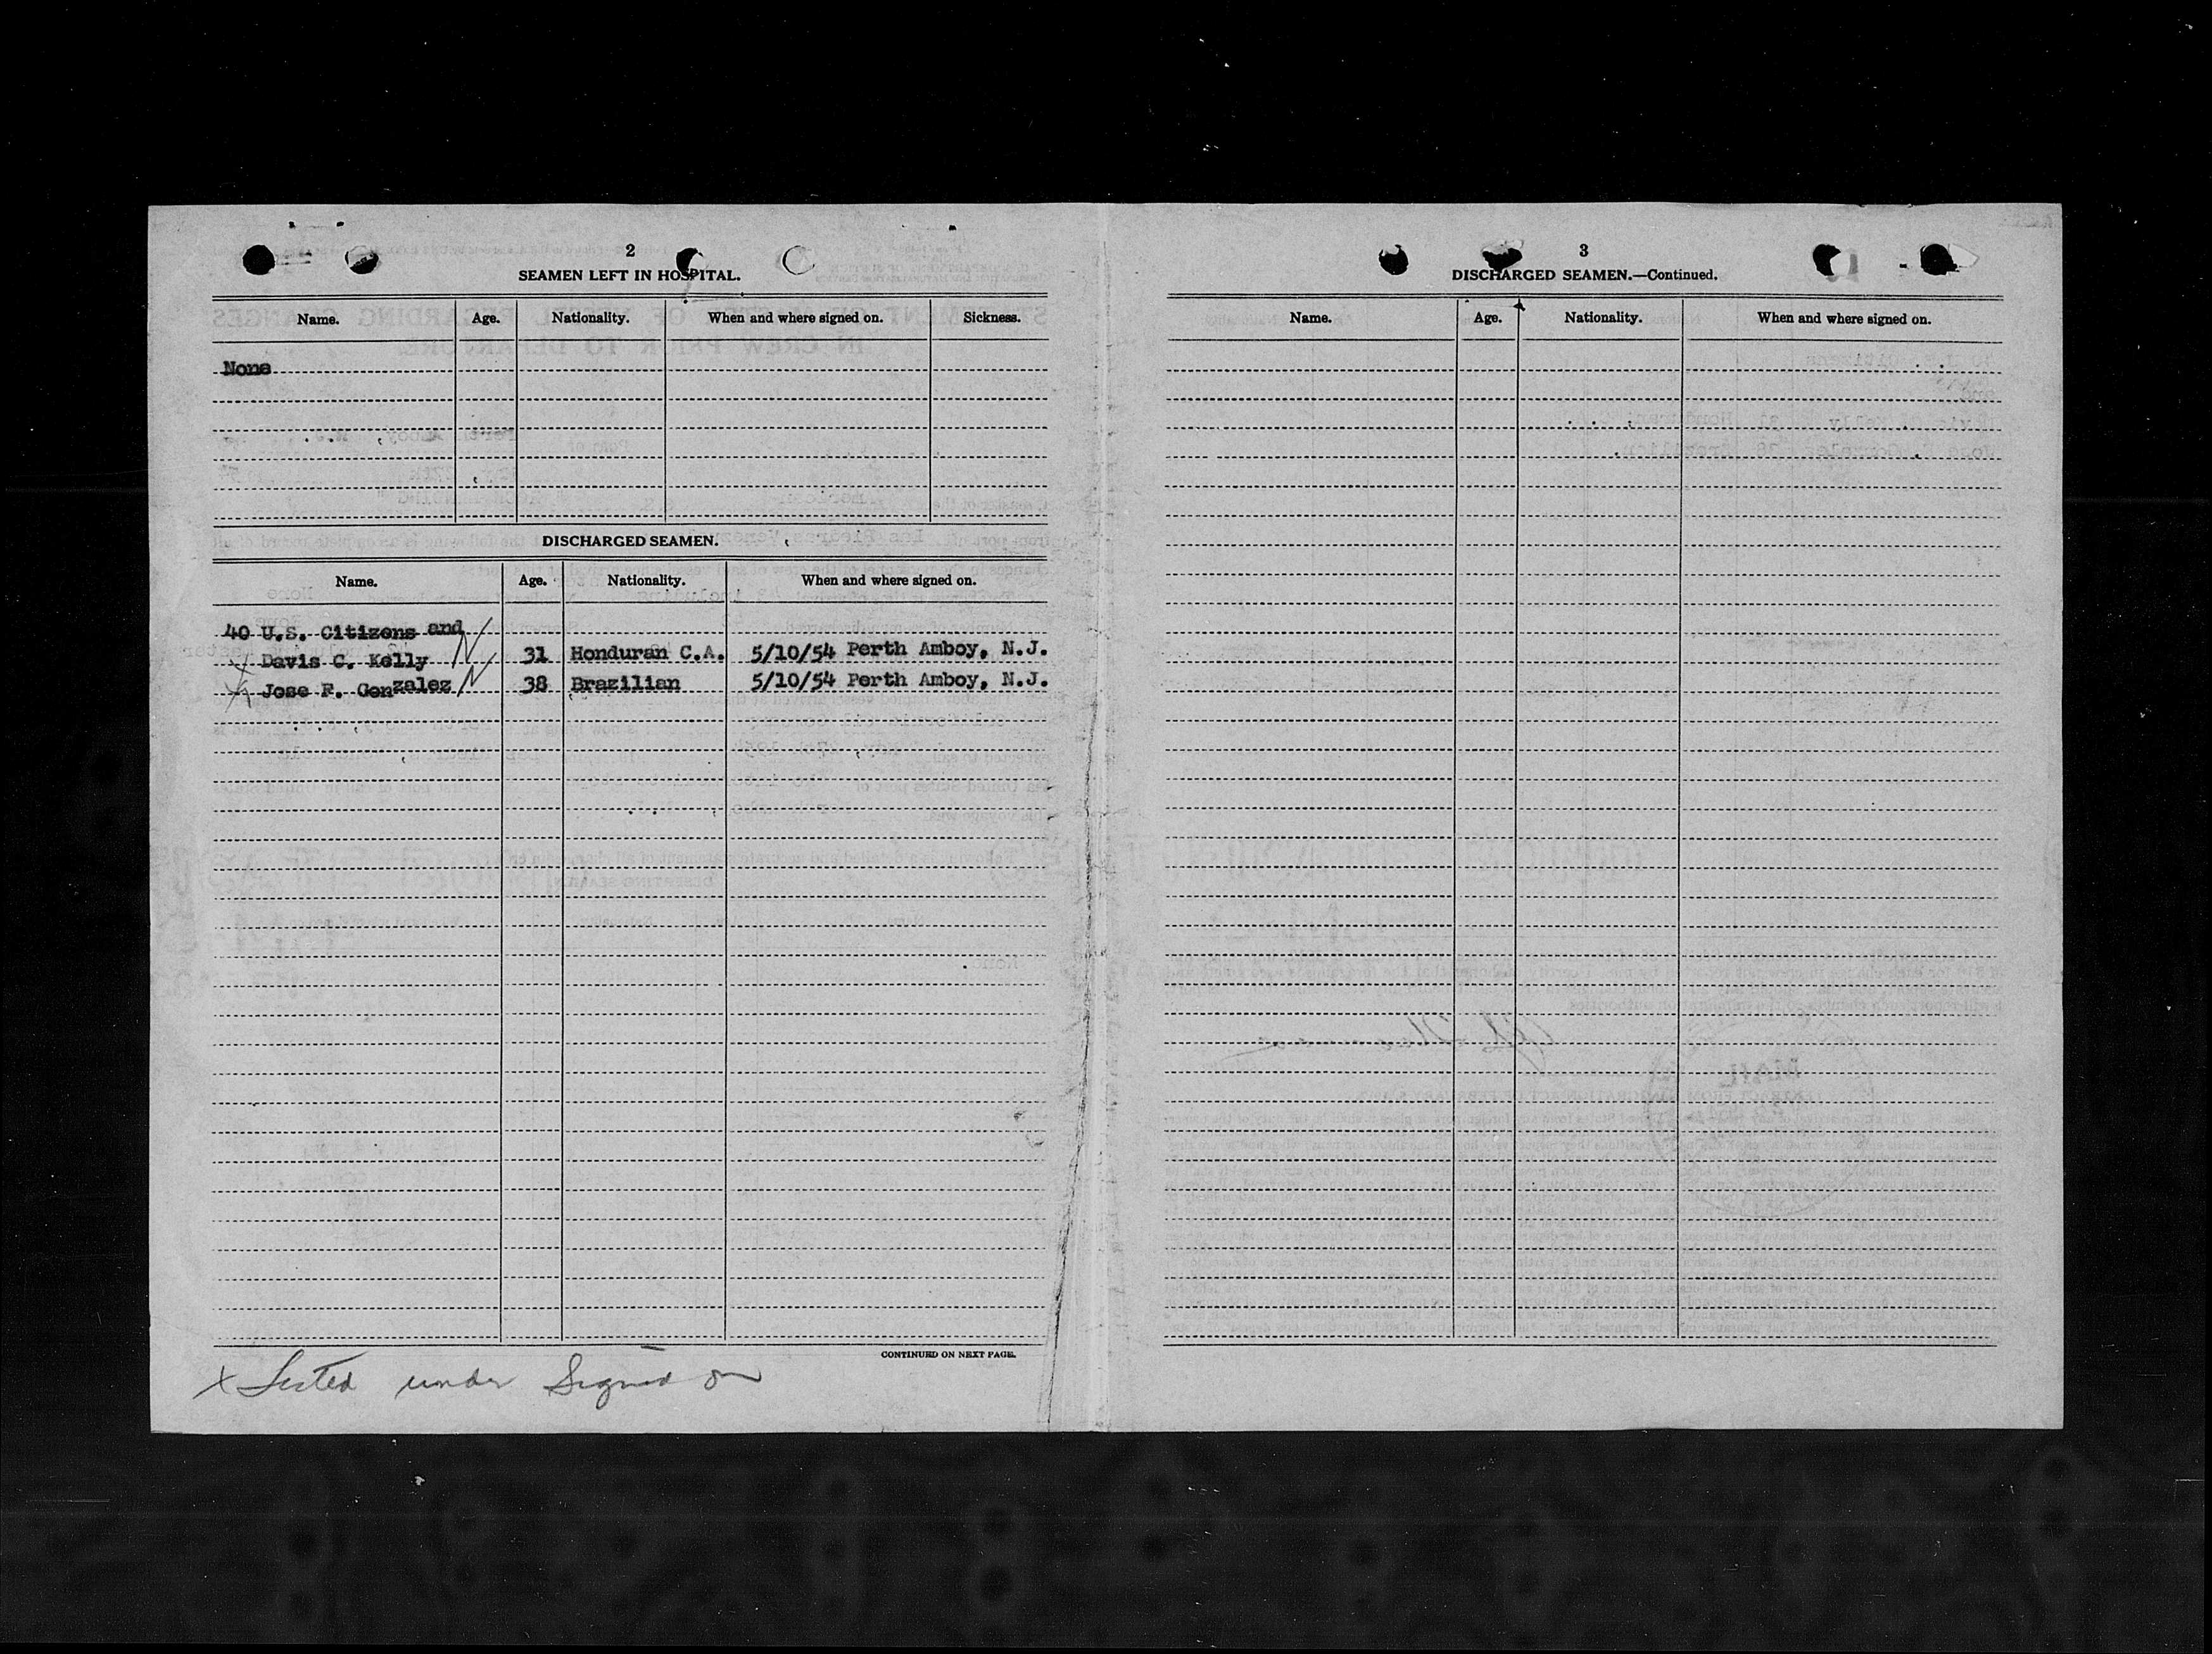 2
SEAMEN LEFT IN HOSPITAL.
Name. Age. Nationality. When and where signed on. Sickness.
None
DISCHARGED SEAMEN.
Name. Age. Nationality. When and where signed on.
40 U.S. Citizens and
X Davis C. Kelly N 31 Honduran C.A. 5/10/54 Perth Amboy, N.J.
X Jose F. Gonzalez N 38 Brazilian 5/10/54 Perth Amboy, N.J.
CONTINUED ON NEXT PAGE.
X Listed under Signed on
3
DISCHARGED SEAMEN.—Continued.
Name. Age. Nationality. When and where signed on.